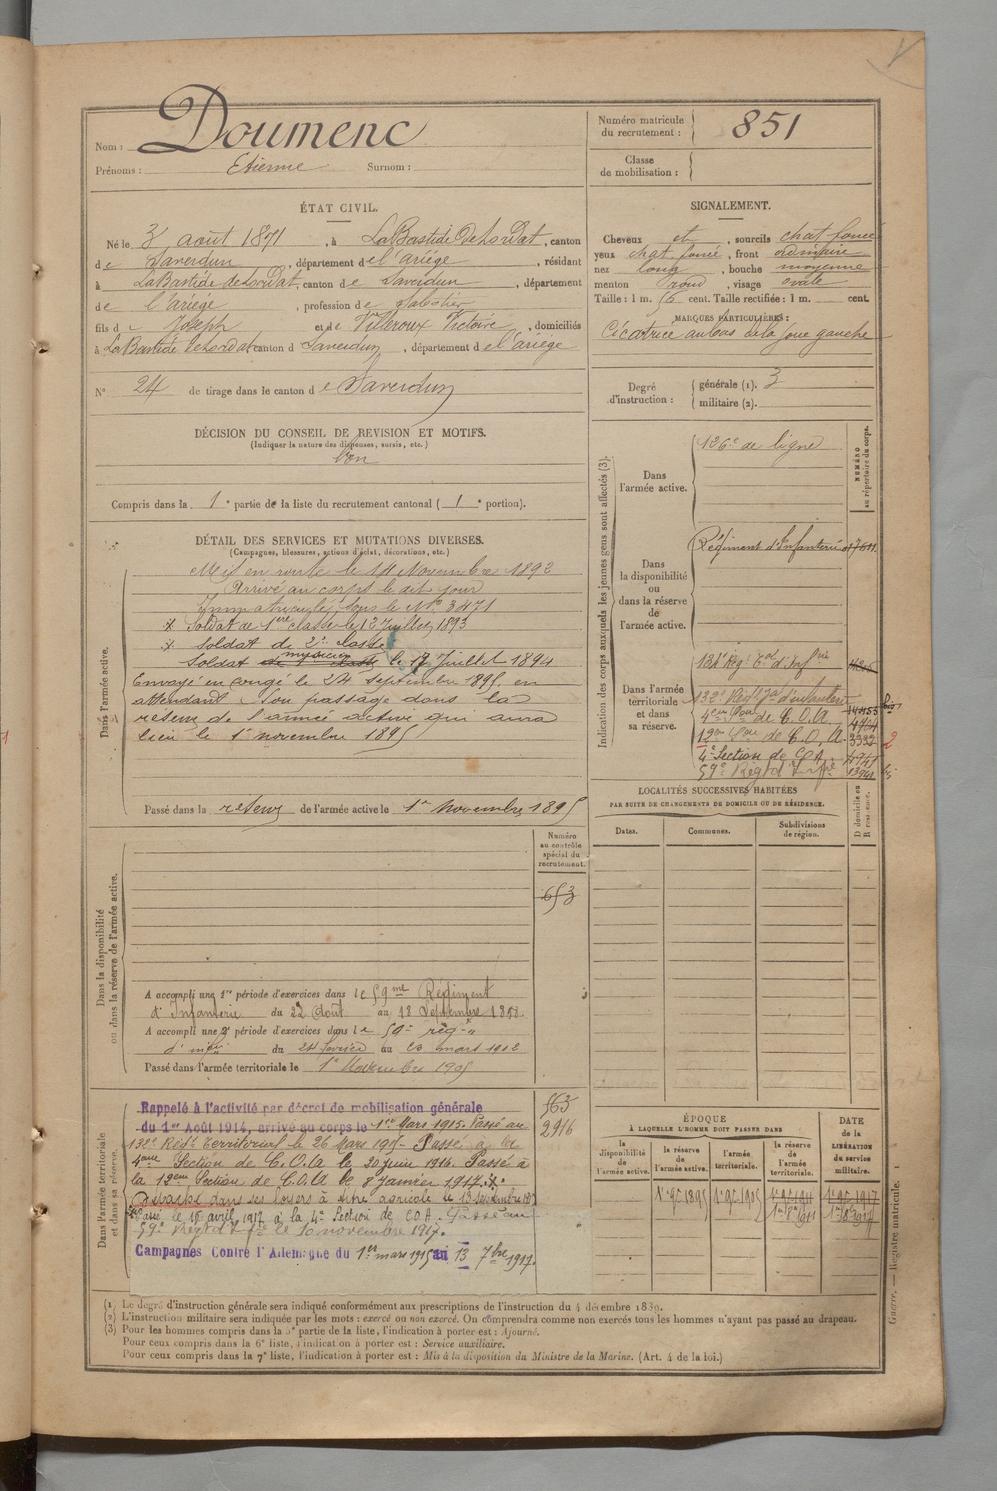 Nom : Doumenc
Prénoms : Etienne Surnom :
Numéro matricule du recrutement : 851
Classe de mobilisation :
ÉTAT CIVIL.
Né le 3 août 1871, à La Bastide de Lordat, canton
de Saverdun, département de l'ariège, résidant
à La Bastide de Lordat, canton de Saverdun, département
de l'ariège, profession de
fils de Joseph et de Villeroux Victoire, domiciliés
à La Bastide de Lordat canton d Saverdun, département de l'ariège
N° 24 de tirage dans le canton de Saverdun
SIGNALEMENT.
Cheveux et, sourcils chat foncé
yeux chat foncé, front ordinaire
nez long, bouche moyenne
menton rond, visage ovale
Taille : 1 m. 56 cent. Taille rectifiée : 1 m. cent.
MARQUES PARTICULIÈRES :
Cicatrice au bas de la joue gauche
Degré d'instruction : générale (1). 3
militaire (2).
DÉCISION DU CONSEIL DE REVISION ET MOTIFS.
(Indiquer la nature des dispenses, sursis, etc.)
bon
Compris dans la 1e partie de la liste du recrutement cantonal (1e portion).
DÉTAIL DES SERVICES ET MUTATIONS DIVERSES.
(Campagnes, blessures, actions d'éclat, décorations, etc.)
Dans l'armée active.
Mis en route le 14 Novembre 1892
Arrivé au corps le dit jour
Immatriculé sous le N° 3471
Soldat de 1ère classe le 12 Juillet 1893
Soldat de 2e classe
Soldat musicien le 17 Juillet 1894
Envoyé en congé le 24 septembre 1895 en
attendant son passage dans la
réserve de l'armée active qui aura
lieu le 1er novembre 1895
Passé dans la réserve de l'armée active le 1er Novembre 1895
Indication des corps auxquels les jeunes gens sont affectés (3).
NUMÉRO au répertoire du corps.
Dans l'armée active.
126e de ligne
Dans la disponibilité ou dans la réserve de l'armée active.
Régiment d'Infanterie
Dans l'armée territoriale et dans sa réserve.
132e Régt Tal d'infanterie
4eme Son de C.O.A.
12eme Son de C.O.A. 3332
4e Section de COA
59e Régt d'Infie
LOCALITÉS SUCCESSIVES HABITÉES
PAR SUITE DE CHANGEMENTS DE DOMICILE OU DE RÉSIDENCE.
Dates. Communes. Subdivisions de région.
D domicile ou R résidence.
Numéro au contrôle spécial du recrutement.
653
Dans la disponibilité ou dans la réserve de l'armée active.
A accompli une 1re période d'exercices dans le 59me Régiment
d'Infanterie du 22 Août au 18 Septembre 1898.
A accompli une 2e période d'exercices dans le 59e rég-t
d'infie du 24 février au 23 mars 1902
Passé dans l'armée territoriale le 1er Novembre 1905
Dans l'armée territoriale et dans sa réserve.
Rappelé à l'activité par décret de mobilisation générale
du 1er Août 1914, arrivé au corps le 1er Mars 1915. Passé au
132e Régt territorial le 26 Mars 1915. Passé à la
4eme Section de C.O.A le 20 juin 1916. Passé à
la 12eme Section de C.O.A le 8 Janvier 1917.
Détaché dans ses foyers à titre agricole le 13 septembre 1917
Passé le 15 avril 1917 à la 4e Section de COA. Passé au
59e Régt d'Infie le 10 novembre 1917.
Campagnes Contre l'Allemagne du 1er mars 1915 au 13 7bre 1917.
563
2916
ÉPOQUE
À LAQUELLE L'HOMME DOIT PASSER DANS
la disponibilité de l'armée active.
la réserve de l'armée active.
l'armée territoriale.
la réserve de l'armée territoriale.
DATE de la LIBÉRATION du service militaire.
1er 9bre 1895 1er 9bre 1905 1er 9bre 1911 1er 9bre 1917
Guerre. — Registre matricule.
(1) Le degré d'instruction générale sera indiqué conformément aux prescriptions de l'instruction du 4 décembre 1889.
(2) L'instruction militaire sera indiquée par les mots : exercé ou non exercé. On comprendra comme non exercés tous les hommes n'ayant pas passé au drapeau.
(3) Pour les hommes compris dans la 5e partie de la liste, l'indication à porter est : Ajourné.
Pour ceux compris dans la 6e liste, l'indication à porter est : Service auxiliaire.
Pour ceux compris dans la 7e liste, l'indication à porter est : Mis à la disposition du Ministre de la Marine. (Art. 4 de la loi.)